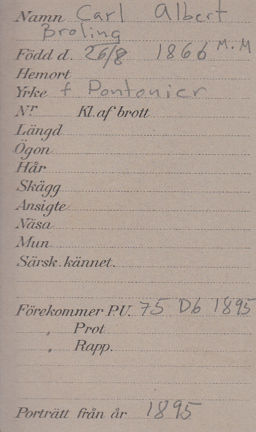 Namn Carl Albert
Broling
Född d. 26/8 1866 M.M
Hemort
Yrke f Pontonier
Nr Kl. af brott
Längd
Ögon
Hår
Skägg
Ansigte
Näsa
Mun
Särsk. kännet.
Förekommer P.U. 75 D6 1895
" Prot.
" Rapp.
Porträtt från år 1895